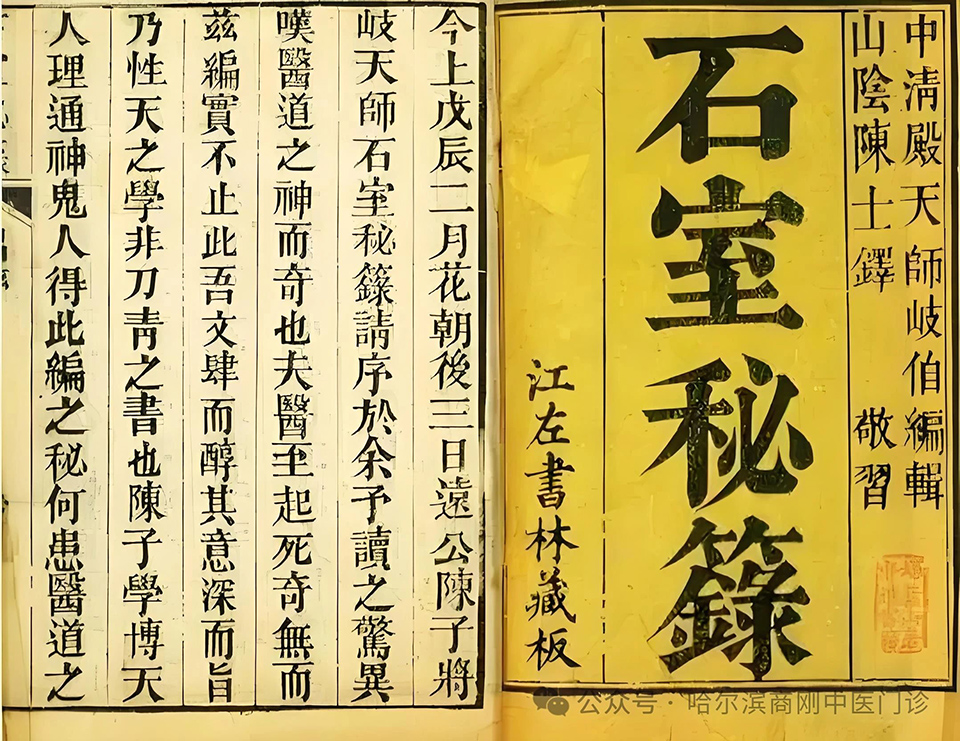 中清殿天師岐伯編輯
山陰陳士鐸 敬習
石室秘籙
江左書林藏板
今上戊辰二月花朝後三日遠公陳子將
岐天師石室秘籙請序於余予讀之驚異
嘆醫道之神而奇也夫醫至起死奇無而
茲編實不止此吾文肆而醇其意深而旨
乃性天之學非刀青之書也陳子學博天
人理通神鬼人得此編之秘何患醫道之
公众号·哈尔滨商刚中医门诊